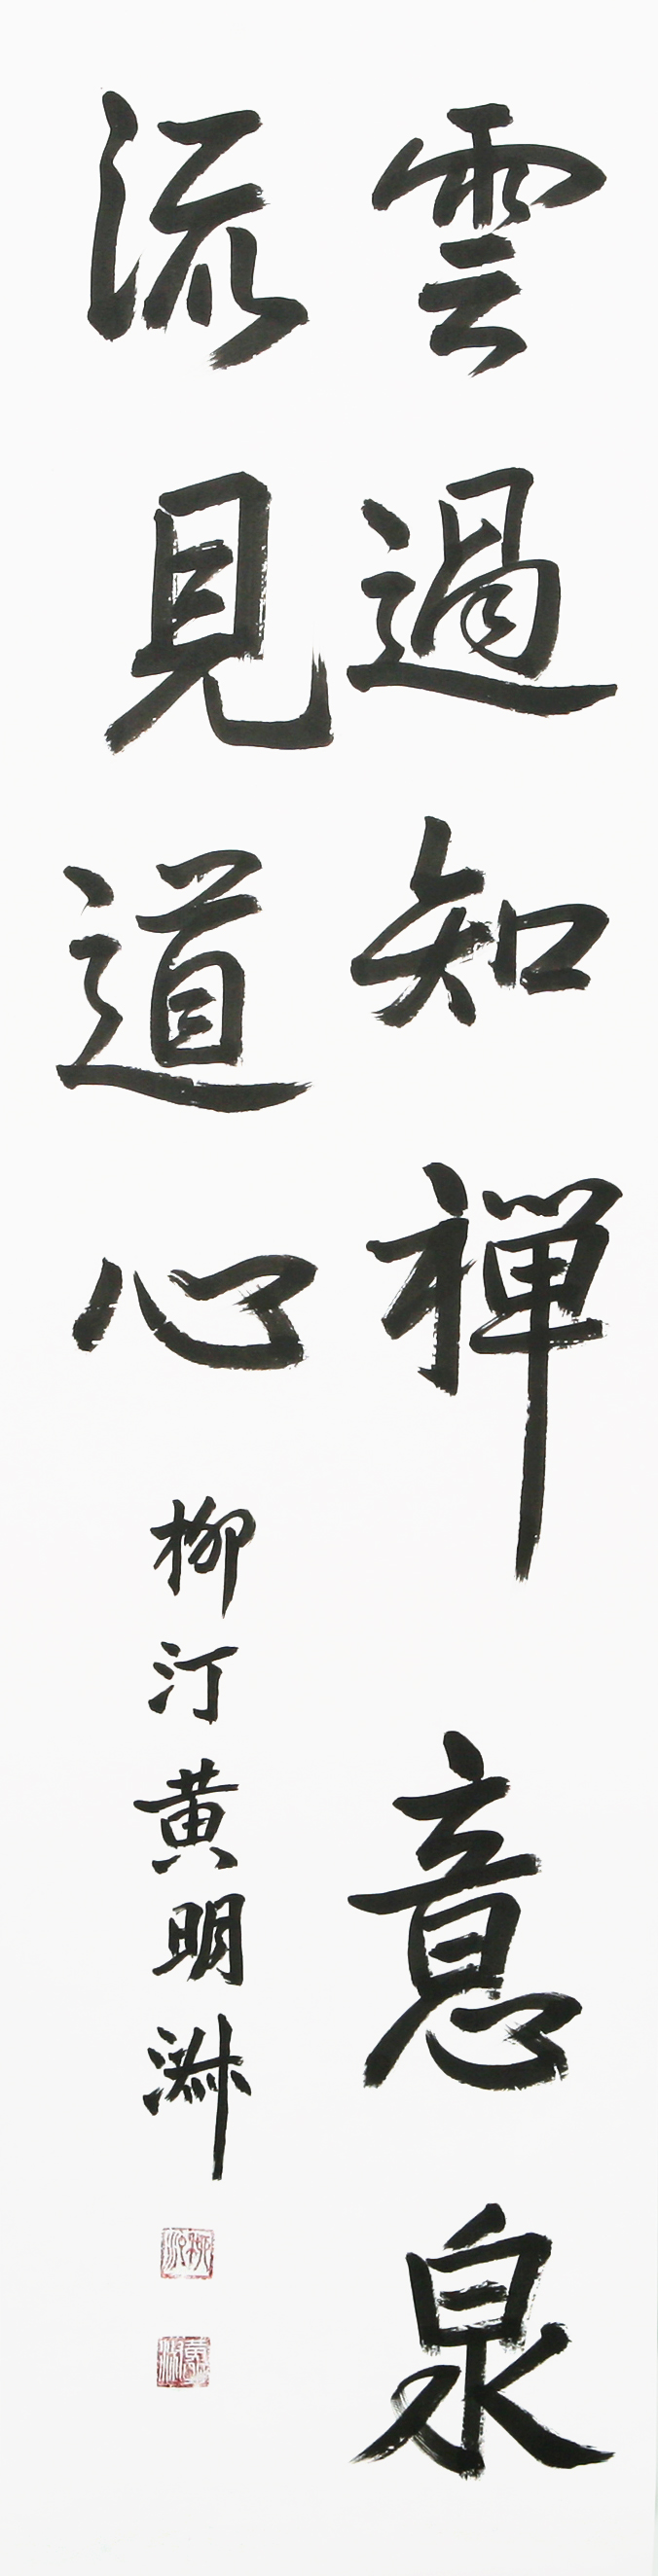 雲過知禅意泉
流見道心
柳汀黄明淋